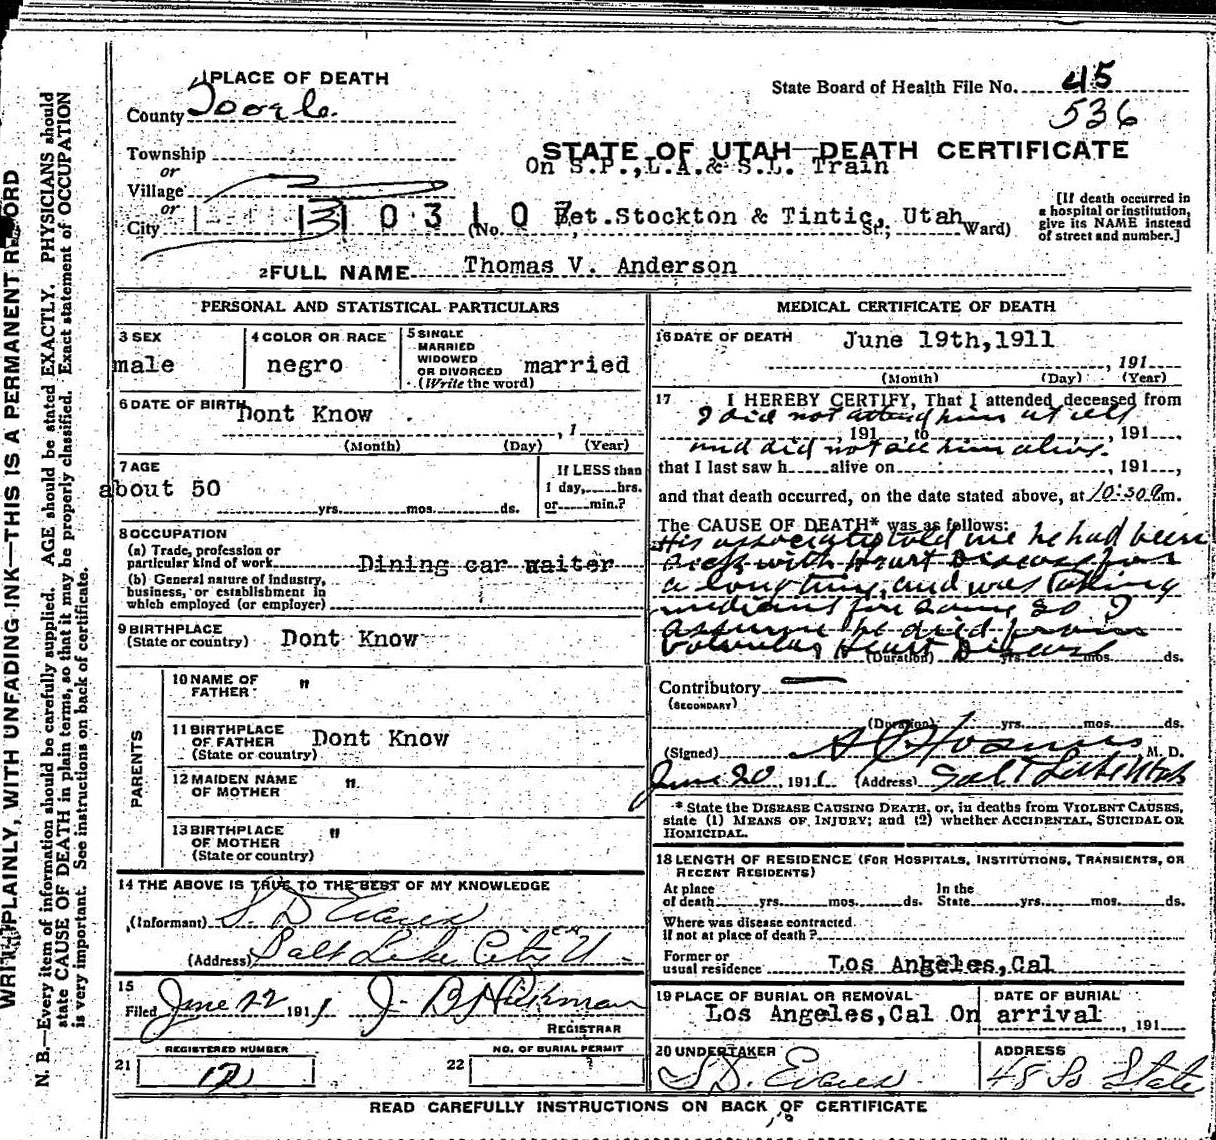 PLACE OF DEATH
County Tooele
State Board of Health File No. 45
536
Township
or
Village
or
City
STATE OF UTAH—DEATH CERTIFICATE
On S.P.,L.A.& S.L. Train
(No. Bet.Stockton & Tintic, Utah St; Ward)
[If death occurred in
a hospital or institution,
give its NAME instead
of street and number.]
2 FULL NAME Thomas V. Anderson
PERSONAL AND STATISTICAL PARTICULARS
3 SEX
male
4 COLOR OR RACE
negro
5 SINGLE
MARRIED
WIDOWED
OR DIVORCED married
(Write the word)
6 DATE OF BIRTH
Dont Know
, 1
(Month) (Day) (Year)
7 AGE
about 50
yrs. mos. ds.
If LESS than
1 day, hrs.
or min.?
8 OCCUPATION
(a) Trade, profession or
particular kind of work Dining car waiter
(b) General nature of Industry,
business, or establishment in
which employed (or employer)
9 BIRTHPLACE
(State or country) Dont Know
PARENTS
10 NAME OF
FATHER "
11 BIRTHPLACE
OF FATHER Dont Know
(State or country)
12 MAIDEN NAME
OF MOTHER "
13 BIRTHPLACE
OF MOTHER "
(State or country)
14 THE ABOVE IS TRUE TO THE BEST OF MY KNOWLEDGE
(Informant) S. D Evans
(Address) Salt Lake City U
15
Filed June 22 1911 J. B. Hickman
REGISTRAR
21 REGISTERED NUMBER
12
22 NO. OF BURIAL PERMIT
MEDICAL CERTIFICATE OF DEATH
16 DATE OF DEATH June 19th,1911
, 191
(Month) (Day) (Year)
17 I HEREBY CERTIFY, That I attended deceased from
I did not attend him at all
, 191 , to , 191 ,
and did not see him alive.
that I last saw h alive on , 191 ,
and that death occurred, on the date stated above, at 10:30 P m.
The CAUSE OF DEATH* was as follows:
His associates told me he had been
sick with Heart Disease for
a long time, and was taking
medicine for same so I
assume he died from
Valvular Heart Disease
(Duration) yrs. mos. ds.
Contributory
(SECONDARY)
(Duration) yrs. mos. ds.
(Signed) M. D.
June 20, 1911 (Address) Salt Lake Utah
* State the DISEASE CAUSING DEATH, or, in deaths from VIOLENT CAUSES,
state (1) MEANS OF INJURY; and (2) whether ACCIDENTAL, SUICIDAL OR
HOMICIDAL.
18 LENGTH OF RESIDENCE (FOR HOSPITALS, INSTITUTIONS, TRANSIENTS, OR
RECENT RESIDENTS)
At place
of death yrs. mos. ds. In the
State yrs. mos. ds.
Where was disease contracted
if not at place of death?
Former or
usual residence Los Angeles,Cal
19 PLACE OF BURIAL OR REMOVAL
Los Angeles,Cal
DATE OF BURIAL
On arrival , 191
20 UNDERTAKER
S. D. Evans
ADDRESS
48 So State
READ CAREFULLY INSTRUCTIONS ON BACK OF CERTIFICATE
WRITE PLAINLY, WITH UNFADING INK—THIS IS A PERMANENT RECORD
N. B.—Every item of information should be carefully supplied. AGE should be stated EXACTLY. PHYSICIANS should
state CAUSE OF DEATH in plain terms, so that it may be properly classified. Exact statement of OCCUPATION
is very important. See instructions on back of certificate.